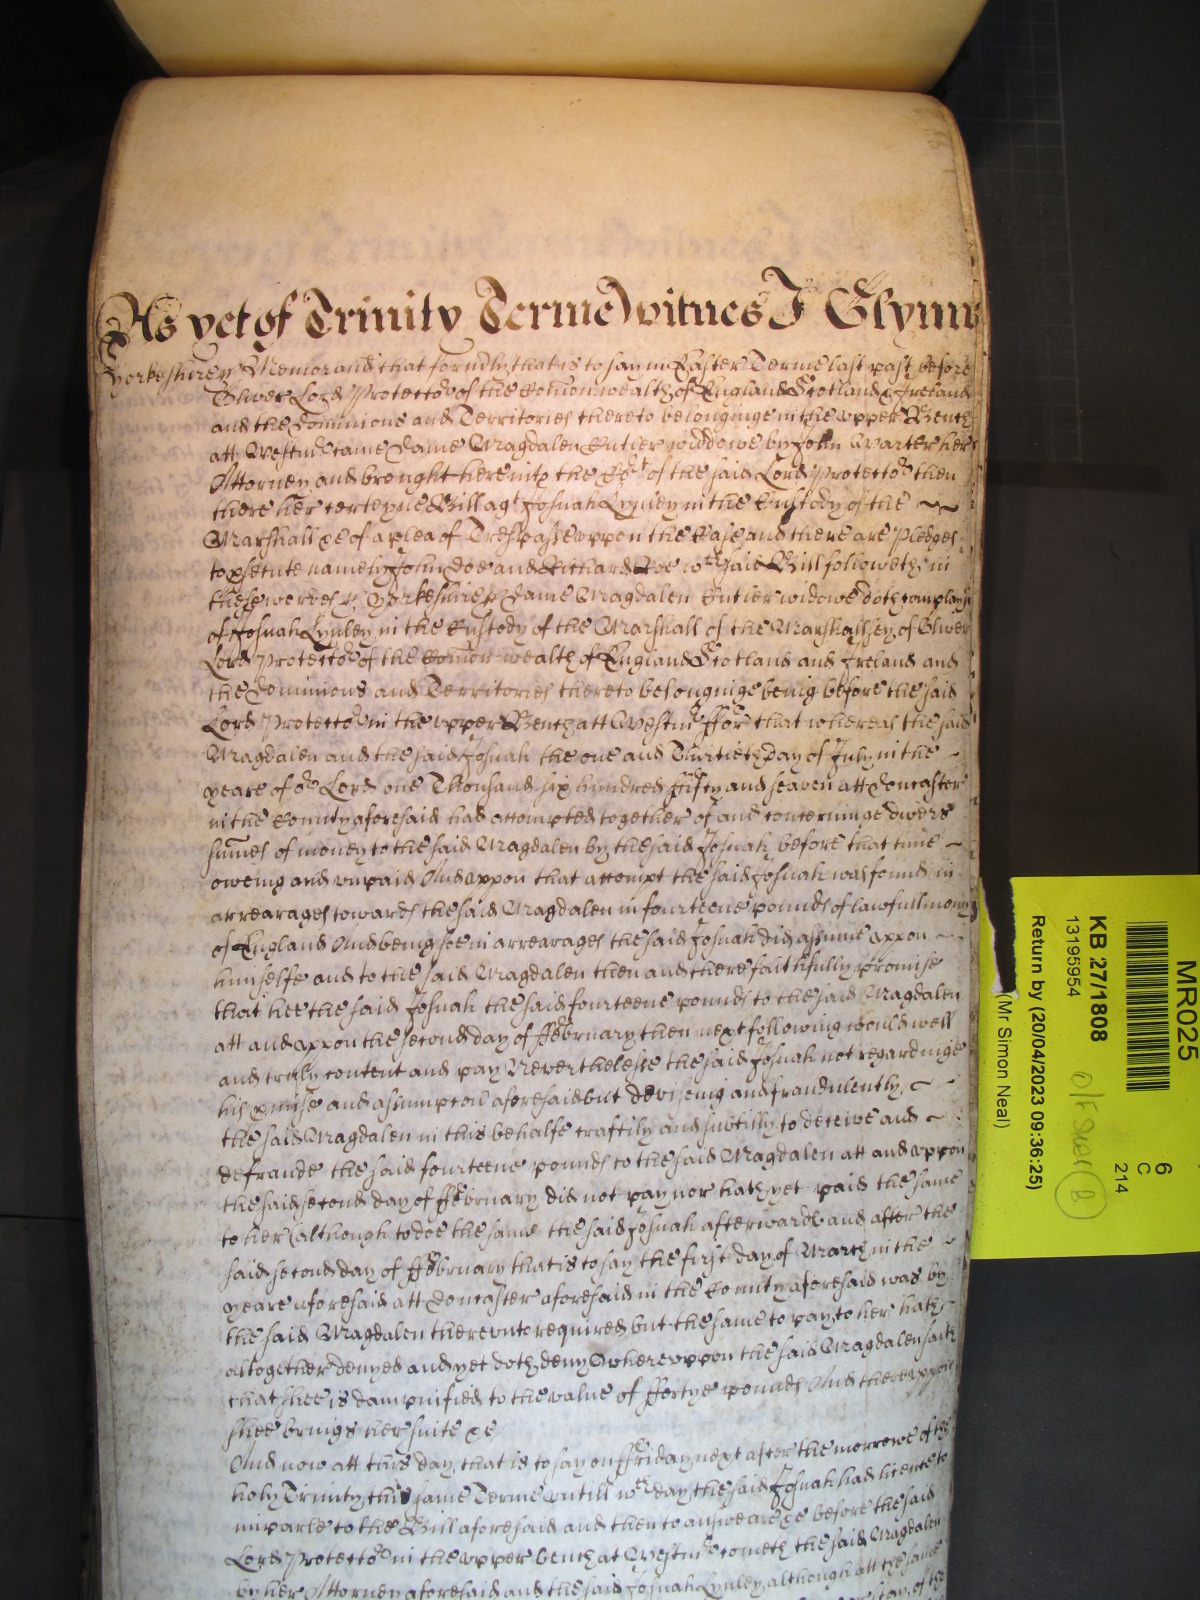 As yet of Trinity Terme witnes J Glynn
Yorkeshire ss Memorand that formerly that is to say in Easter Terme last past before
Oliver Lord Protector of the Comon wealth of England Scotland & Ireland
and the Dominions and Territories thereto belonginge in the upper Bench
att Westm came Dame Magdalen Cutler widdowe by John Warter her
Attorney and brought here into the Cort of the said Lord Protector then
there her certeyne Bill agt Josuah Lynley in the Custody of the
Marshall &c of a plea of Trespasse uppon the Case and there are Pledges
to psecute namely John Doe and Richard Roe wch said Bill followeth in
these wordes ss Yorkeshire ss Dame Magdalen Cutler widowe doth complayne
of Josuah Lynley in the Custody of the Marshall of the Marshallsey of Oliver
Lord Protector of the Comon wealth of England Scotland and Ireland and
the Dominions and Territories thereto belonginge being before the said
Lord Protector in the upper Bench att Westm ffor that whereas the said
Magdalen and the said Josuah the one and Thirtieth day of July in the
yeare of or Lord one Thousand six hundred fifty and seaven att Doncaster
in the County aforesaid had accompted together of and concerninge divers
sumes of money to the said Magdalen by the said Josuah before that time
oweing and unpaid And uppon that accompt the said Josuah was found in
arrearages towards the said Magdalen in fourteene pounds of lawfull mony
of England And being soe in arrearages the said Josuah did assume uppon
himselfe and to the said Magdalen then and there faithfully promise
that hee the said Josuah the said fourteene pounds to the said Magdalen
att and uppon the second day of ffebruary then next following would well
and truly content and pay Neverthelesse the said Josuah not regardinge
his pmise and assumpcon aforesaid but devising and fraudulently
the said Magdalen in this behalfe craftily and subtilly to deceive and
defraude the said fourteene pounds to the said Magdalen att and uppon
the said second day of ffebruary did not pay nor hath yet paid the same
to her (although to doe the same the said Josuah afterwards and after the
said second day of ffebruary that is to say the first day of March in the
yeare aforesaid att Doncaster aforesaid in the County aforesaid was by
the said Magdalen thereunto required but the same to pay to her hath
altogether denyed and yet doth deny Whereuppon the said Magdalen saith
that shee is dampnified to the value of ffortye pounds And thereuppon
shee brings her suite &c
And now att this day that is to say on ffriday next after the morrowe of the
holy Trinity this same Terme untill wch day the said Josuah had licence to
imparle to the Bill aforesaid and then to answeare &c before the said
Lord Protector in the upper bench at Westm cometh the said Magdalen
by her Attorney aforesaid and the said Josuah Lynley although att the same
MR025
6
C
214
KB 27/1808
13195954
Return by (20/04/2023 09:36:25)
(Mr Simon Neal)